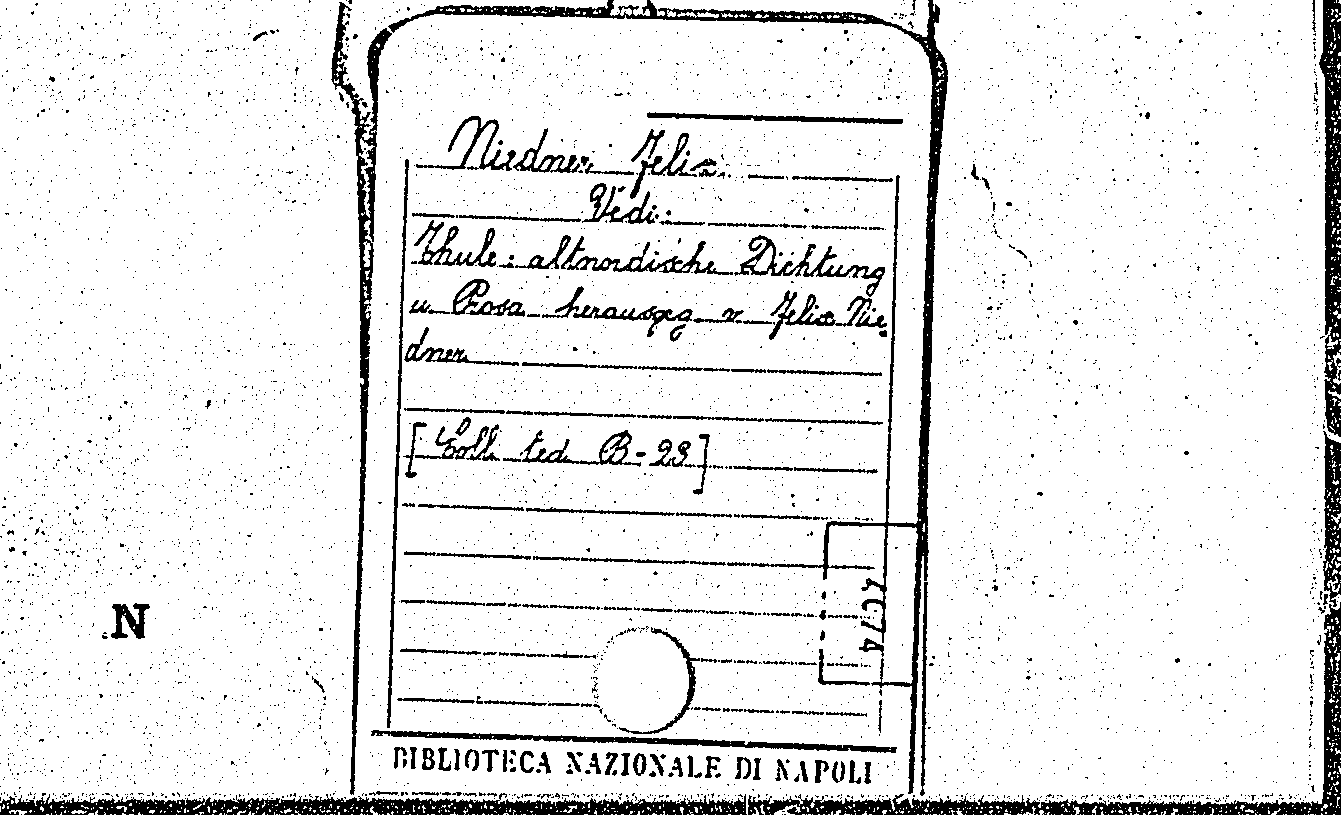 Niedner Felix.
Vedi:
Thule: altnordische Dichtung
u. Prosa herausgeg. v. Felix Nie-
dner
[Coll. ted. B-23]
4074
N
BIBLIOTECA NAZIONALE DI NAPOLI